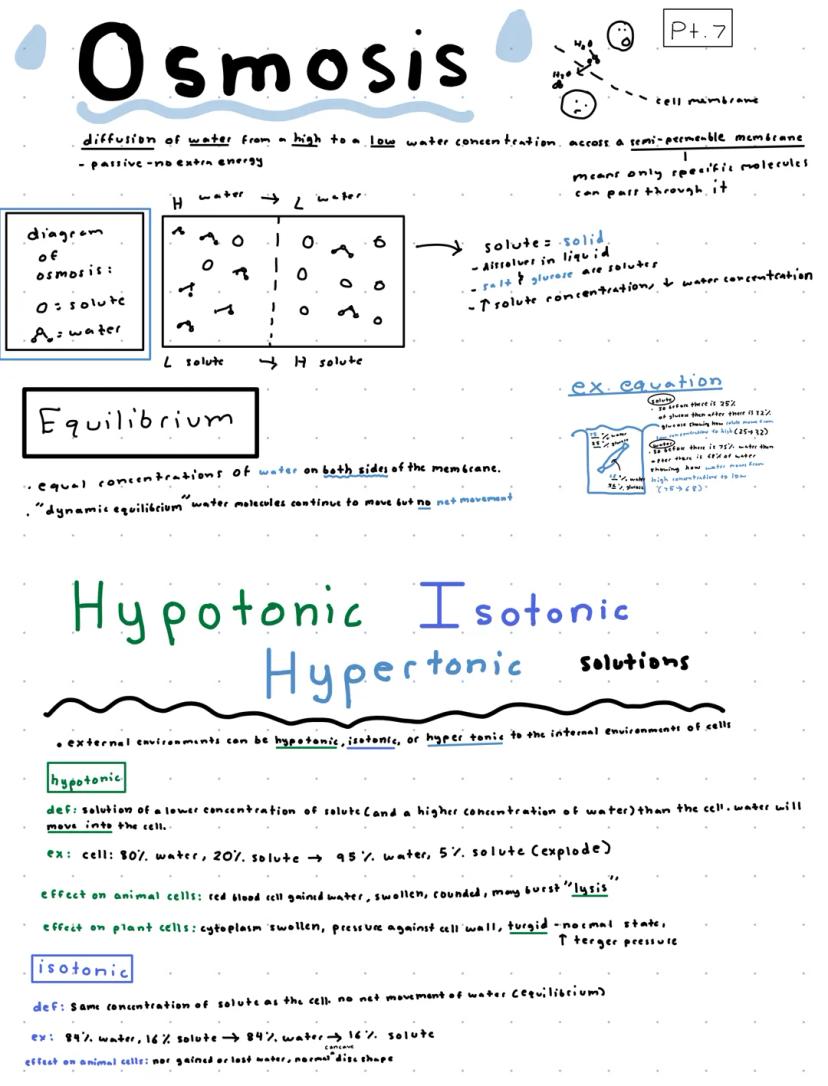 Osmosis
Pt. 7
H₂O
H₂O
cell membrane
diffusion of water from a high to a low water concentration across a semi-permeable membrane
- passive - no extra energy
means only specific molecules
can pass through it
H water → L water
diagram
of
osmosis:
O = solute
= water
L solute → H solute
solute = solid
- dissolves in liquid
- salt & glucose are solutes
- ↑ solute concentration, ↓ water concentration
Equilibrium
• equal concentrations of water on both sides of the membrane.
• "dynamic equilibrium" water molecules continue to move but no net movement
ex. equation
solute
• so before there is 25%
of glucose then after there is 32%
glucose showing how solute moves from
low concentration to high (25→32)
water
• so before there is 75% water then
after there is 68% of water
showing how water moves from
high concentration to low
(75→68)
% water
% glucose
% water
% glucose
Hypotonic Isotonic
Hypertonic solutions
• external environments can be hypotonic, isotonic, or hyper tonic to the internal environments of cells
hypotonic
def: solution of a lower concentration of solute (and a higher concentration of water) than the cell. water will
move into the cell.
ex: cell: 80% water, 20% solute → 95% water, 5% solute (explode)
effect on animal cells: red blood cell gained water, swollen, rounded, may burst "lysis"
effect on plant cells: cytoplasm swollen, pressure against cell wall, turgid - normal state,
↑ terger pressure
isotonic
def: same concentration of solute as the cell. no net movement of water (equilibrium)
ex: 84% water, 16% solute → 84% water → 16% solute
concave
effect on animal cells: nor gained or lost water, normal ^ disc shape